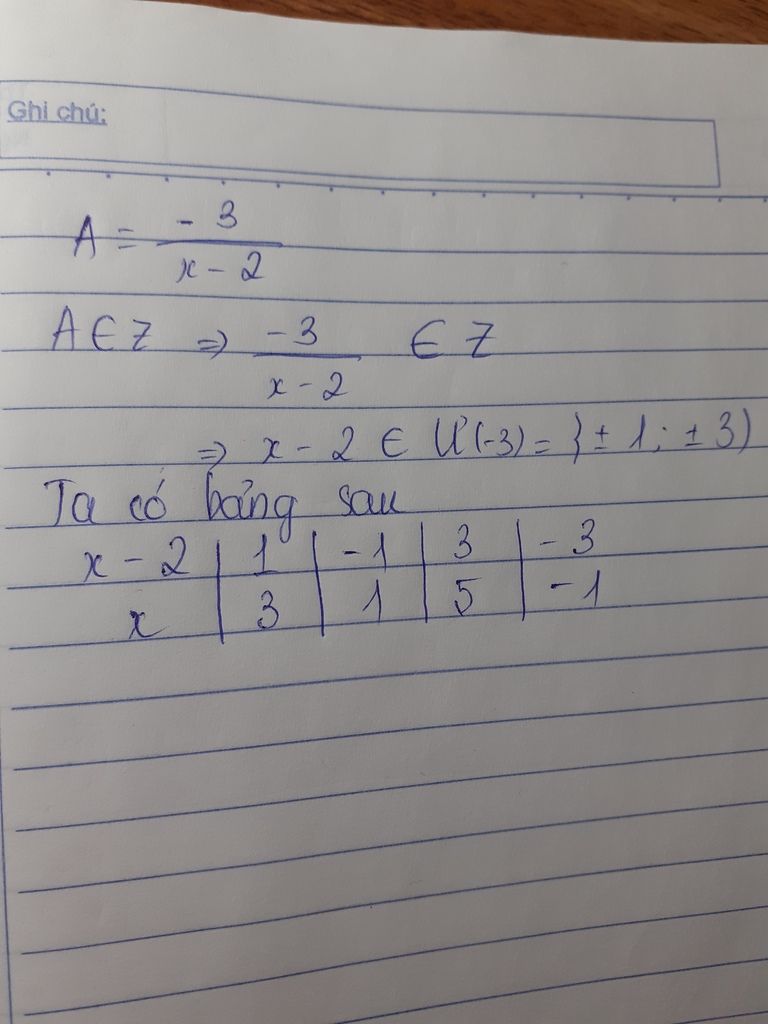 Ghi chú:
A = -3 / x - 2
A ∈ Z => -3 / x - 2 ∈ Z
=> x - 2 ∈ Ư(-3) = {± 1; ± 3}
Ta có bảng sau
x - 2 | 1 | -1 | 3 | -3
x | 3 | 1 | 5 | -1